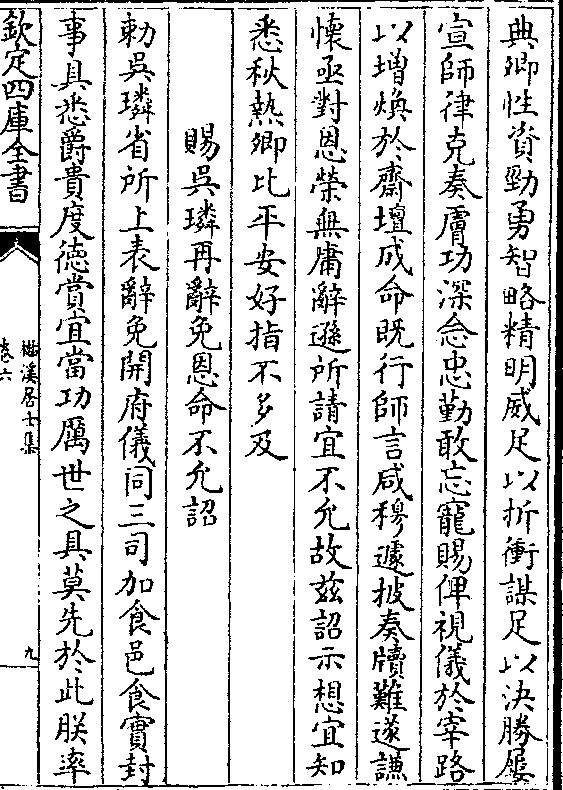 典卿性資勁勇智略精明威足以折衝謀足以決勝屢
宣師律克奏膚功深念忠勤敢忘寵賜俾視儀於宰路
以增煥於齋壇成命既行師言咸穆遽披奏牘難遂謙
懷亟對恩榮無庸辭遜所請宜不允故兹詔示想宜知
悉秋熱卿比平安好指不多及
賜吳璘再辭免恩命不允詔
勅吳璘省所上表辭免開府儀同三司加食邑食實封
事具悉爵貴度德賞宜當功厲世之具莫先於此朕率
欽定四庫全書
溪居士集
卷六
九